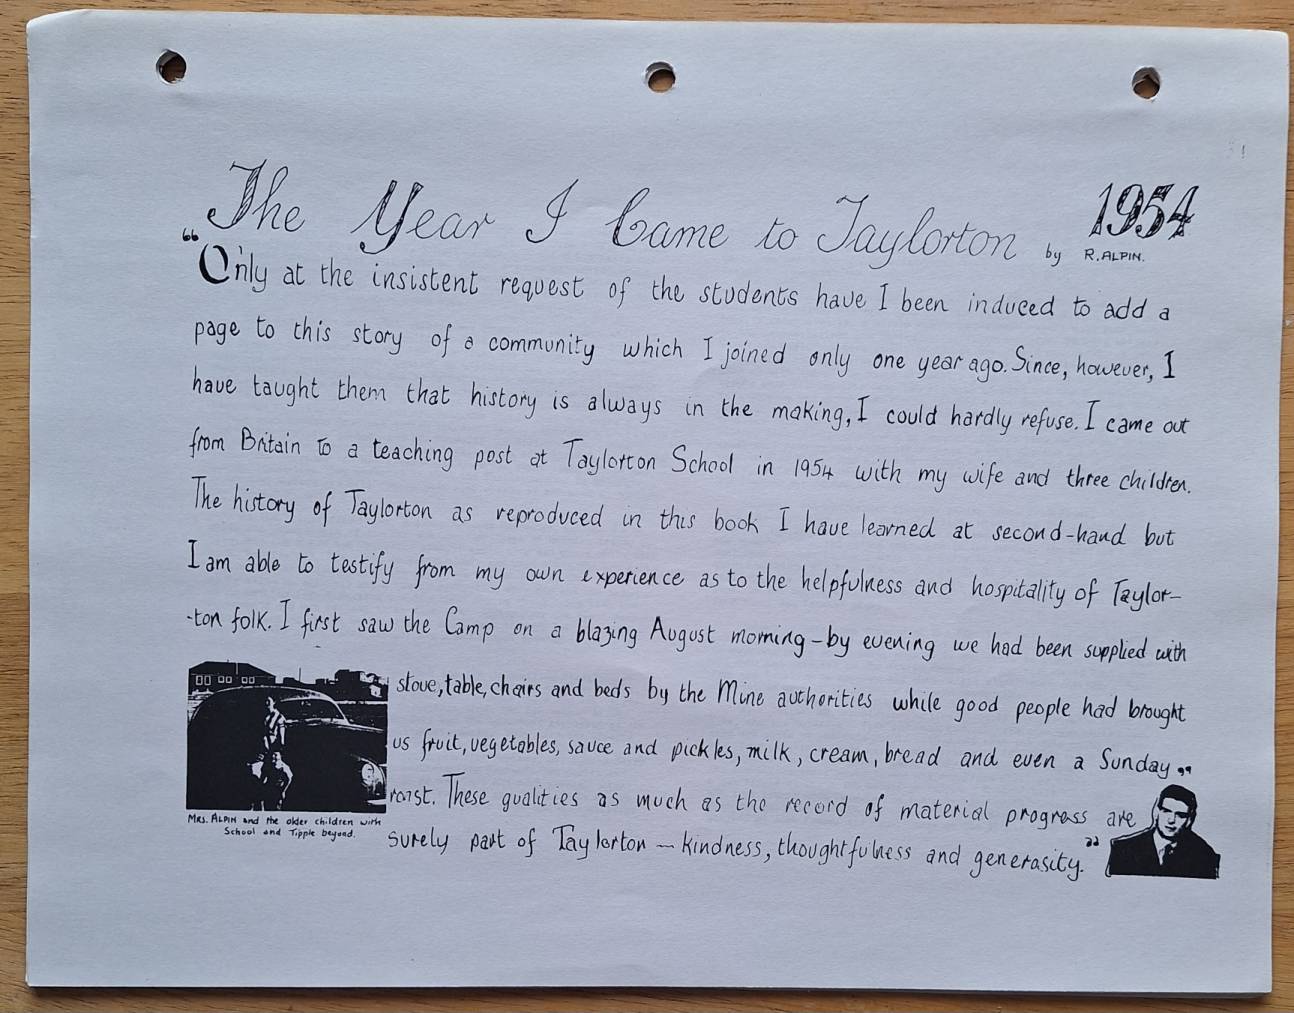 The Year I Came to Taylorton 1954
by R. ALPIN.
“Only at the insistent request of the students have I been induced to add a
page to this story of a community which I joined only one year ago. Since, however, I
have taught them that history is always in the making, I could hardly refuse. I came out
from Britain to a teaching post at Taylorton School in 1954 with my wife and three children.
The history of Taylorton as reproduced in this book I have learned at second-hand but
I am able to testify from my own experience as to the helpfulness and hospitality of Taylor-
-ton folk. I first saw the Camp on a blazing August morning – by evening we had been supplied with
stove, table, chairs and beds by the Mine authorities while good people had brought
us fruit, vegetables, sauce and pickles, milk, cream, bread and even a Sunday „
roast. These qualities as much as the record of material progress are
surely part of Taylorton — kindness, thoughtfulness and generosity.”
MRS. ALPIN and the older children with
School and Tipple beyond.